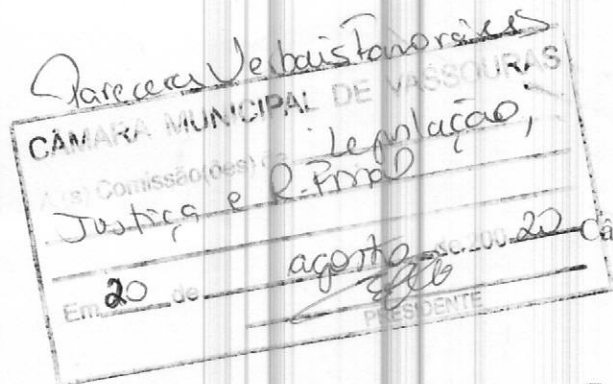 Pareceres Verbais Favoráveis
CÂMARA MUNICIPAL DE VASSOURAS
A(s) Comissão(ões) de Legislação,
Justiça e R. Final
Em 20 de agosto de 200 20
PRESIDENTE
Câ